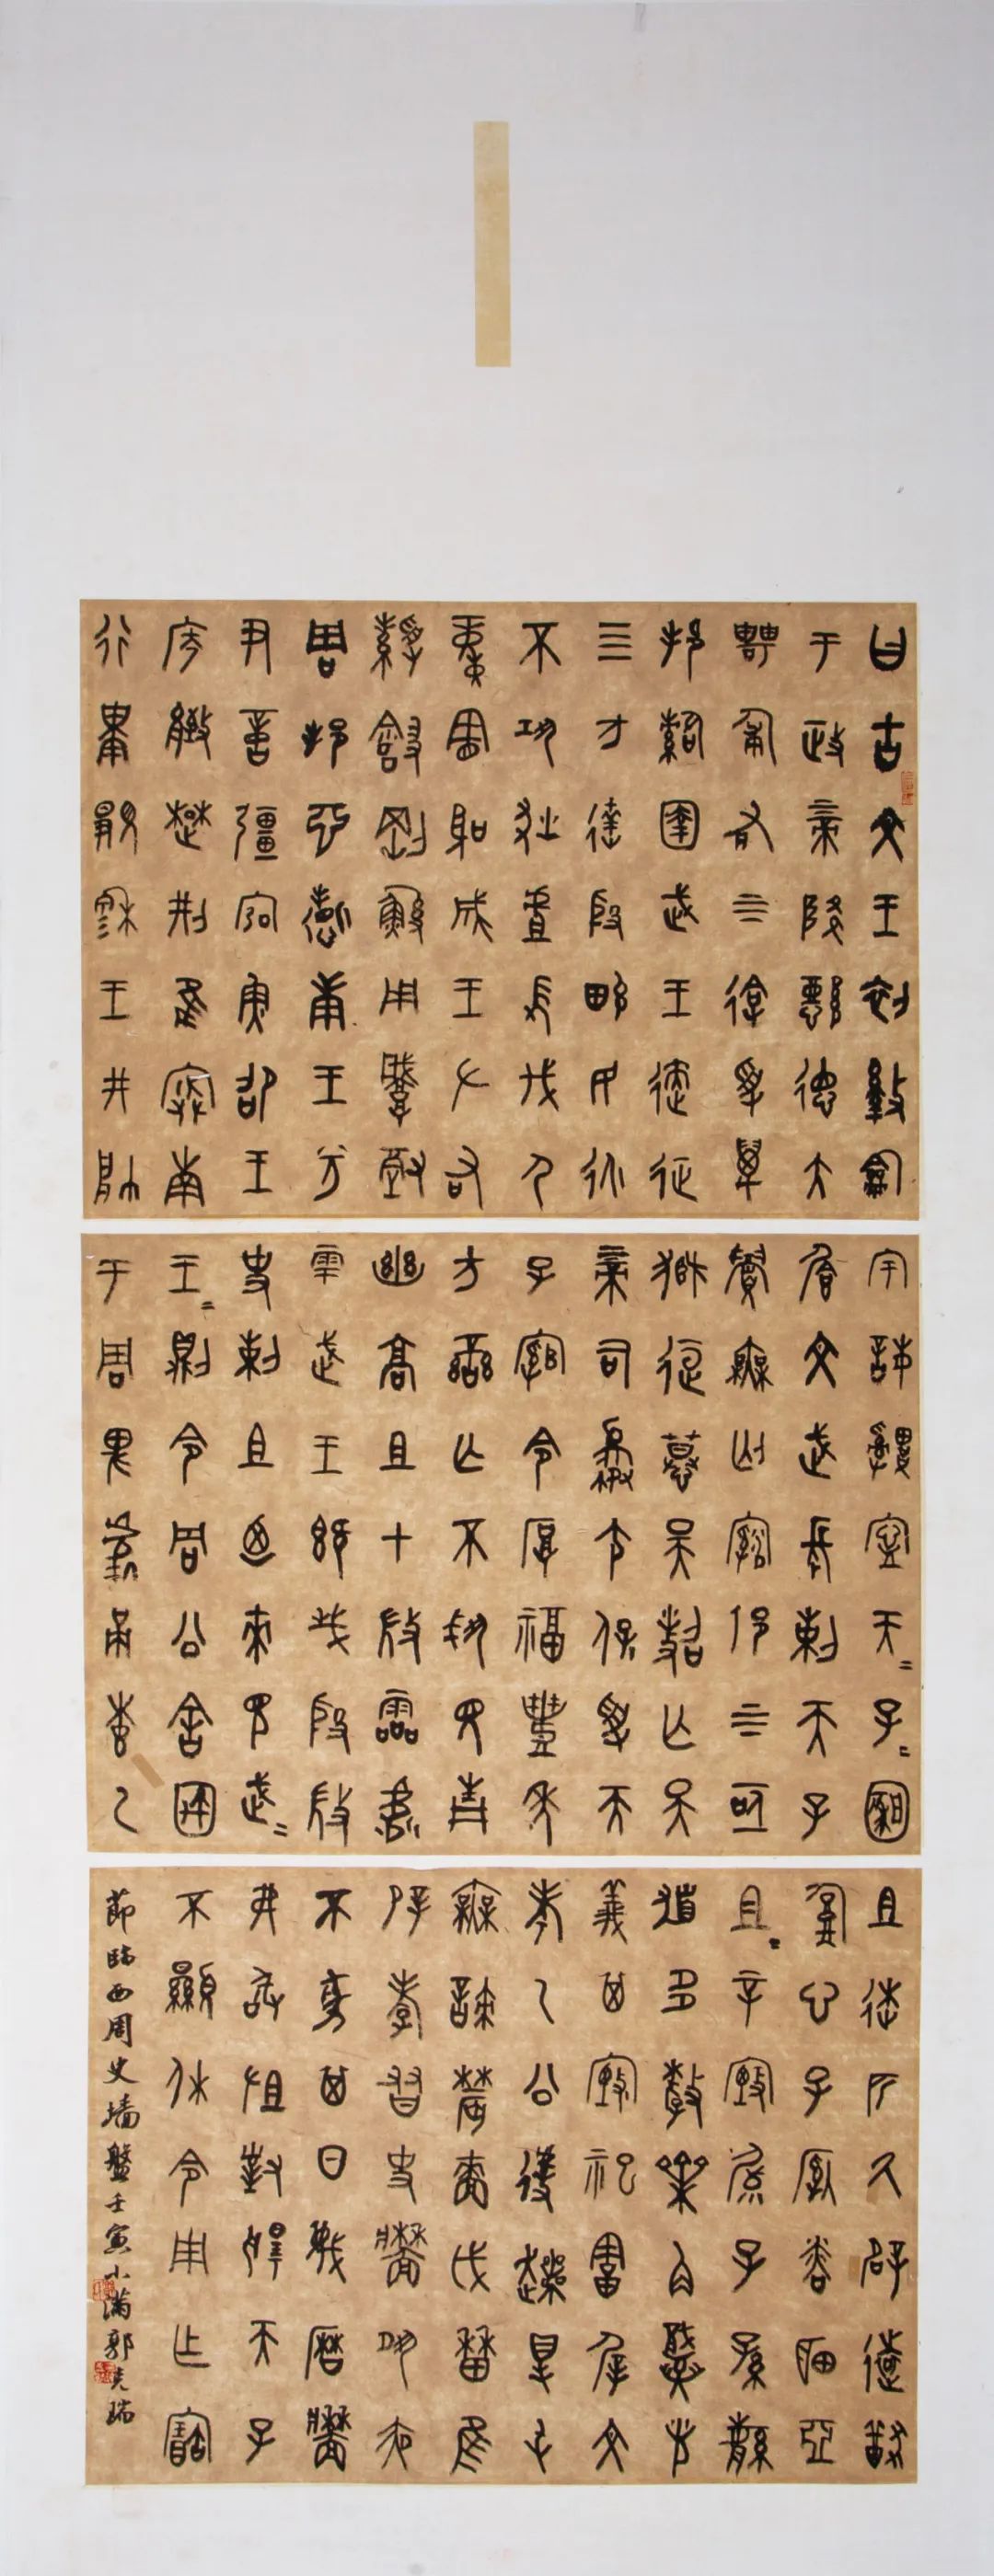 曰古文王初盭龢
于政上帝降懿德大
甹匍有上下迨受萬
邦圉武王遹征
四方達殷畯民永
不巩狄虘長伐尸
童憲聖成王左右
綬會剛鯀用肇徹
周邦淵哲康王分
尹啻彊宖魯卲王
廣楚荊隹寏南
行祗覭穆王井帥
宇誨申寧天=子=恪
文武長剌天子
眉無匄上下亟
逗慕昊照亡昊
上帝司夒尢保受天
子綰令厚福豐年
方蠻亡不見青
幽高且才微靈處
雩武王既殷微
史剌且廼來見武=
王=則令周公舍宇
于周卑處甬惠乙
且逨匹厥辟遠猷
腹心子粦明亞
且=辛毓子孫繁
多釐角熾光
義其禋祀害屖文
考乙公遽得屯
無諫農嗇戉曆隹
辟孝友史牆夙夜
不墜其日蔑曆牆
弗敢沮對揚天子
不顯休令用乍寶
節臨西周史墻盤壬寅小滿郭克瑞